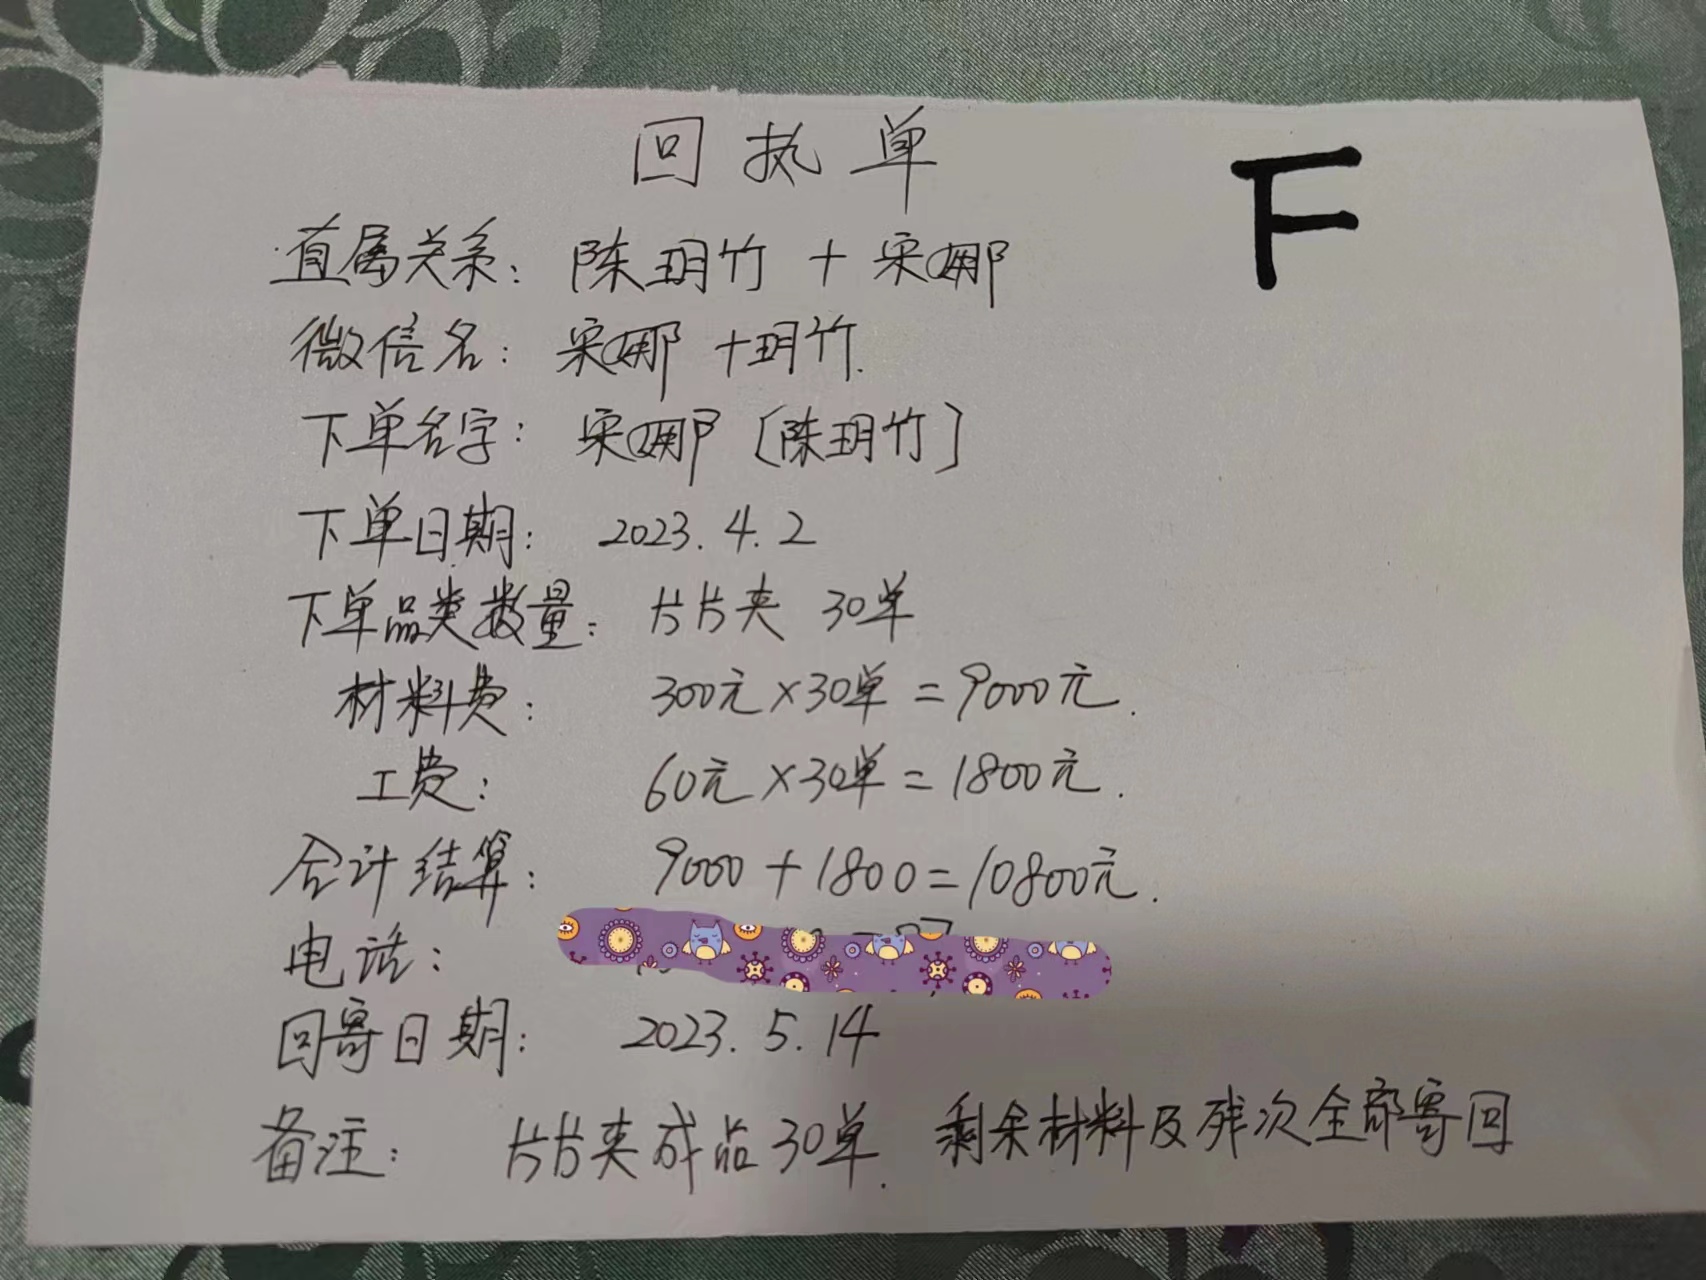 回执单
F
直属关系：陈玥竹 + 宋娜
微信名：宋娜 +玥竹.
下单名字：宋娜 [陈玥竹]
下单日期：2023.4.2
下单品类数量：片片夹 30单
材料费：300元×30单=9000元.
工费：60元×30单=1800元.
合计结算：9000+1800=10800元.
电话：
回寄日期：2023.5.14
备注：片片夹成品30单. 剩余材料及残次全部寄回